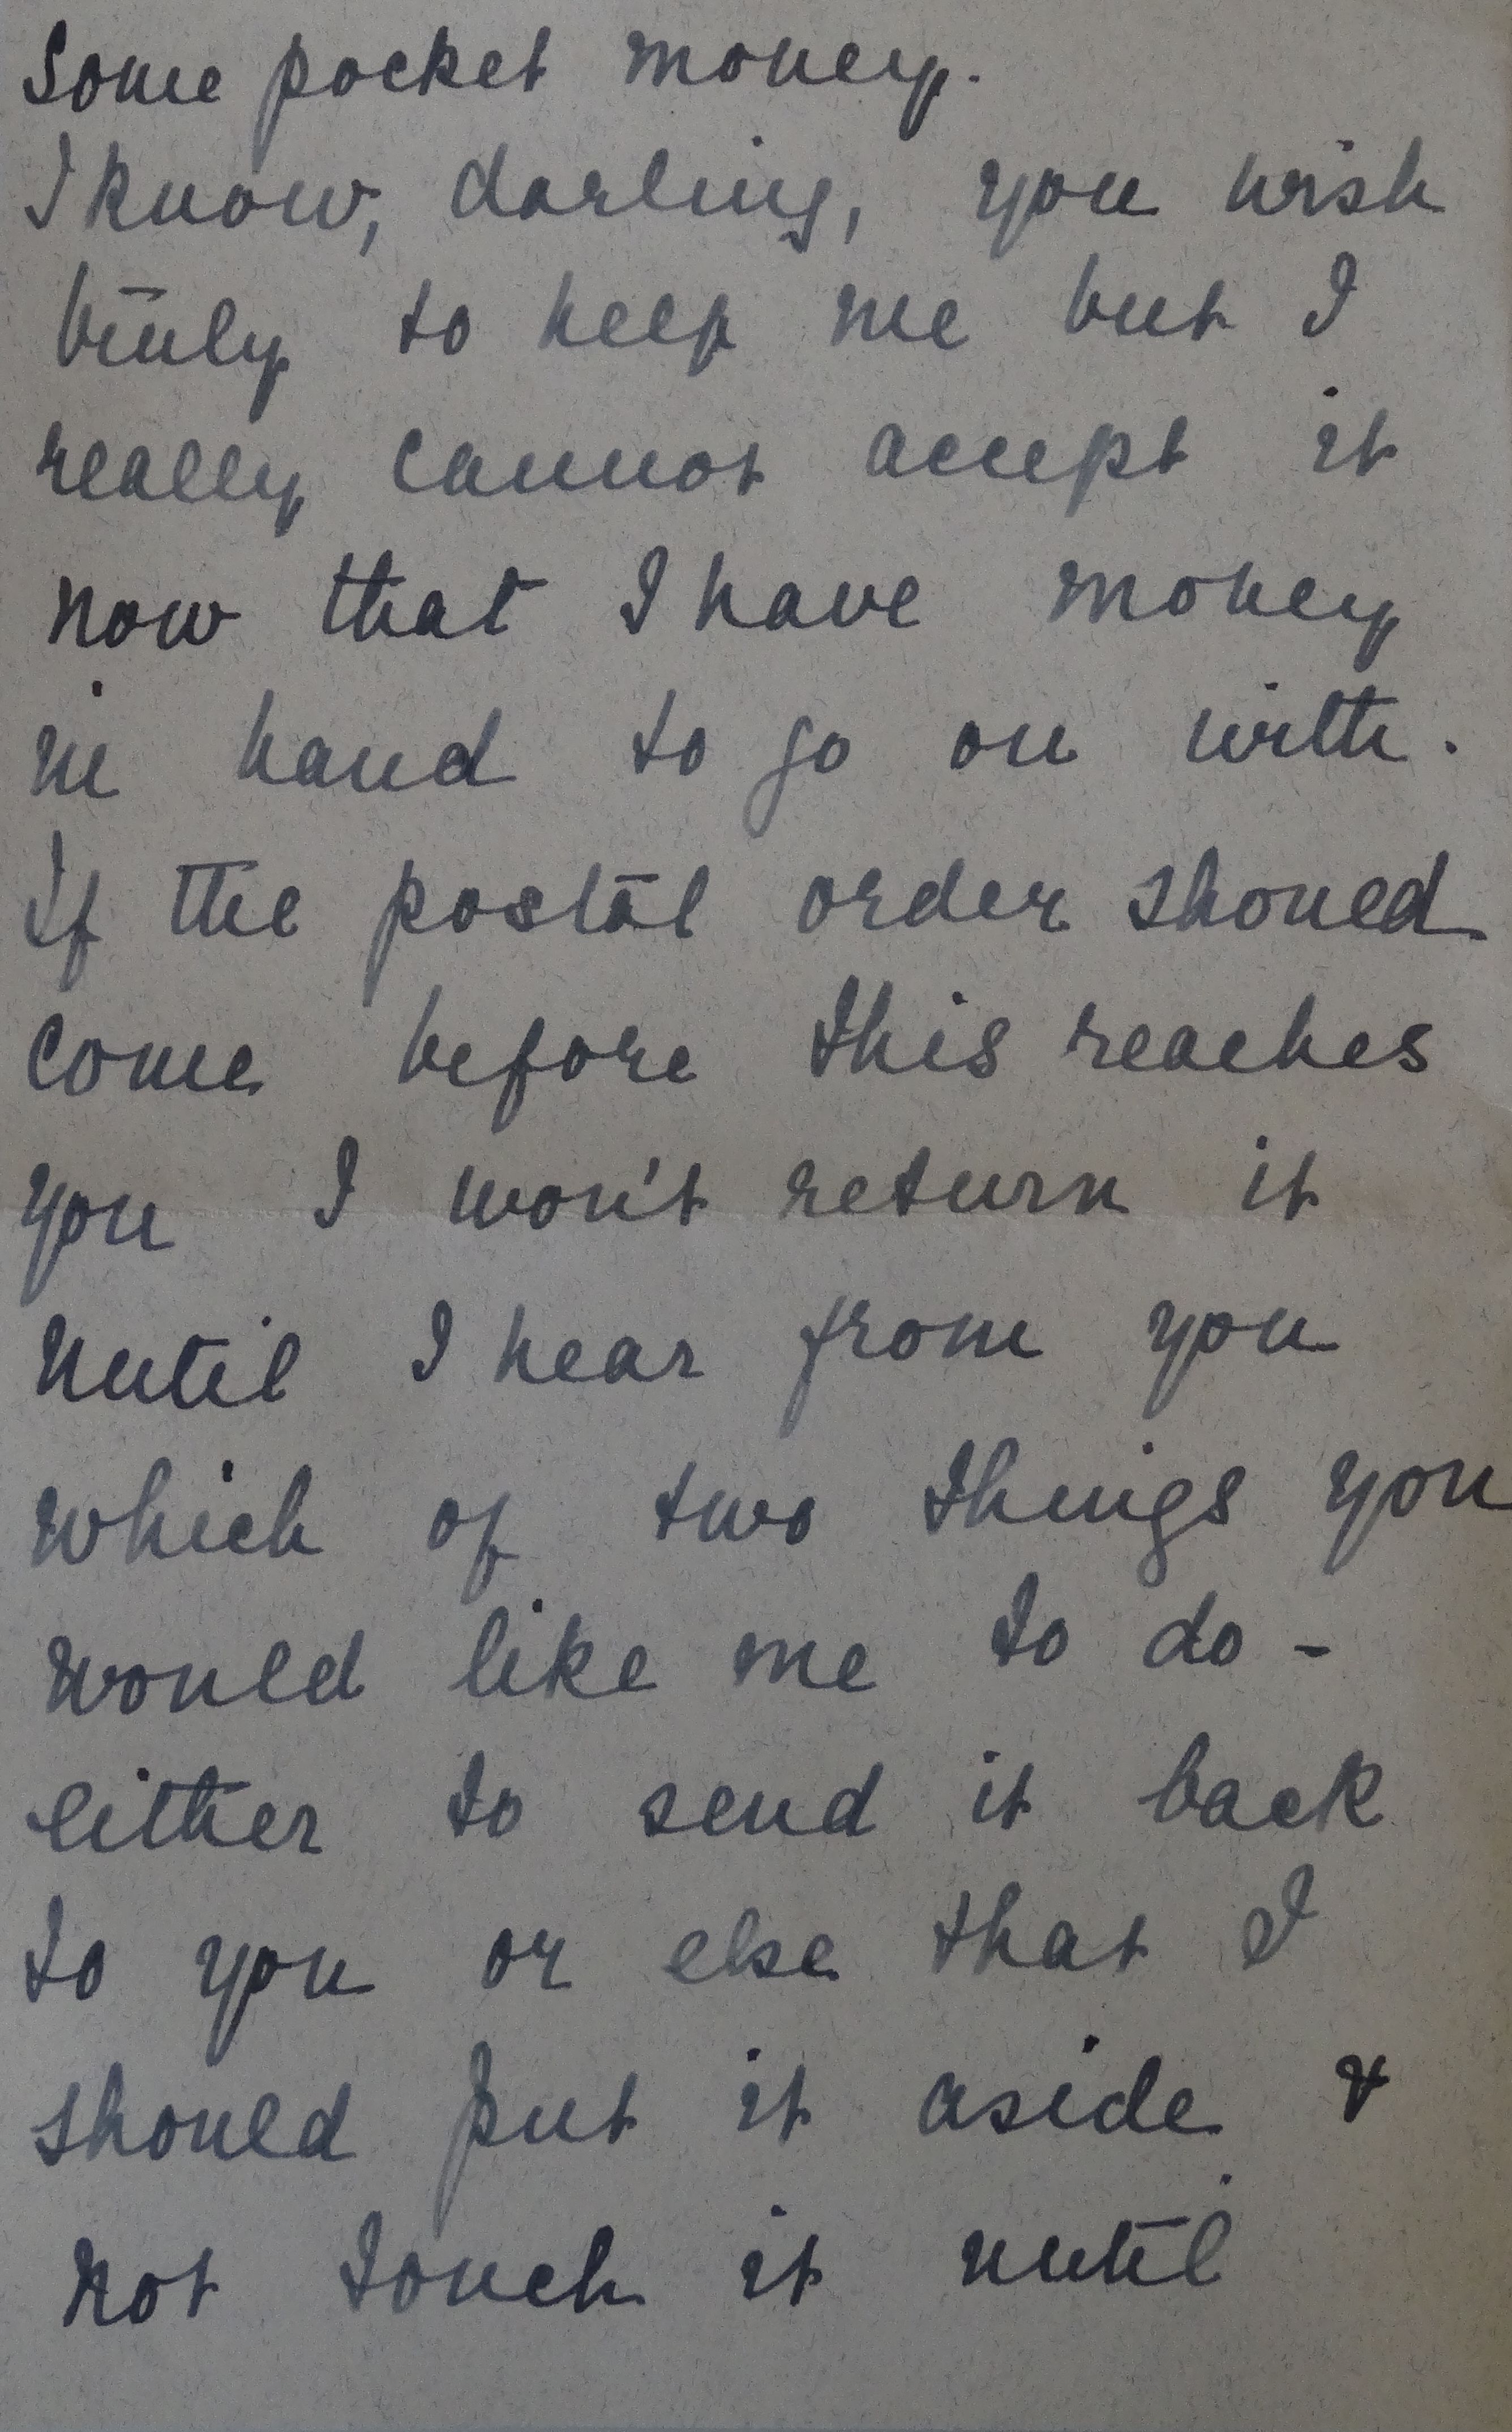 Some pocket money.
I know, darling, you wish
truly to keep me but I
really cannot accept it
now that I have money
in hand to go on with.
If the postal order should
come before this reaches
you I won't return it
until I hear from you
which of two things you
would like me to do -
either to send it back
to you or else that I
should put it aside &
not touch it until